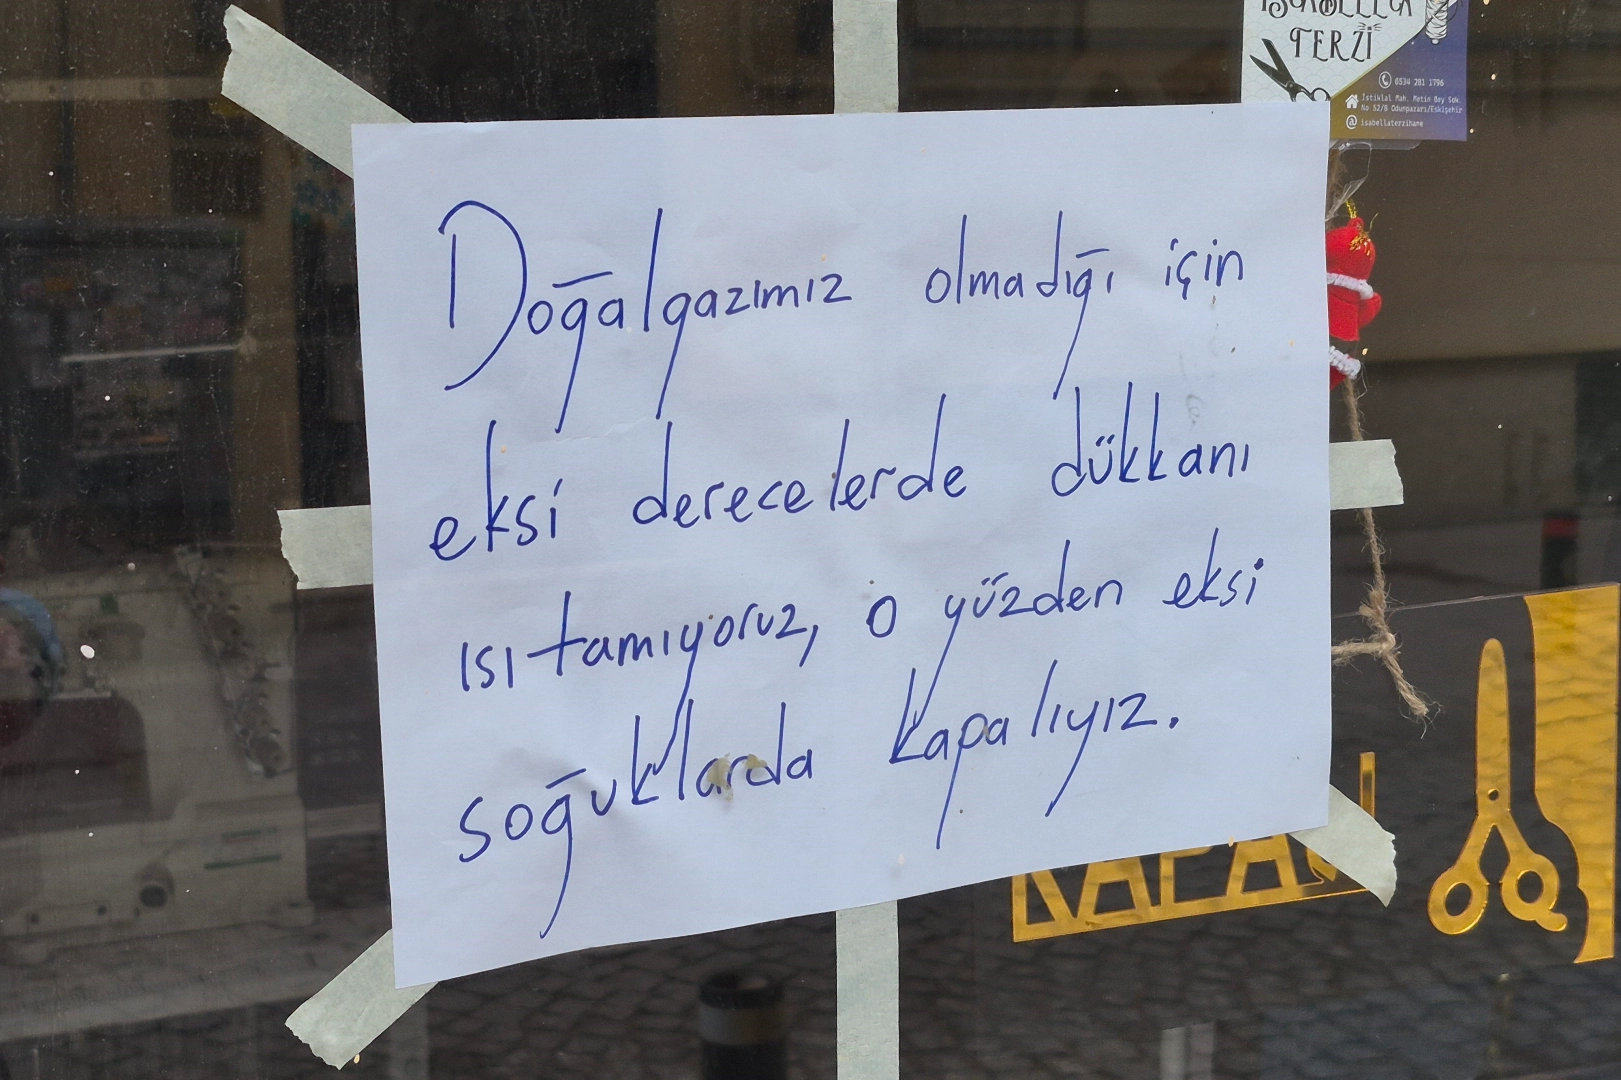 ISABELLA
TERZİ
0534 281 1796
İstiklal Mah. Metin Bey Sok.
No 52/B Odunpazarı/Eskişehir
isabellaterzihane
Doğalgazımız olmadığı için
eksi derecelerde dükkanı
ısıtamıyoruz, o yüzden eksi
soğuklarda kapalıyız.
KAPALI